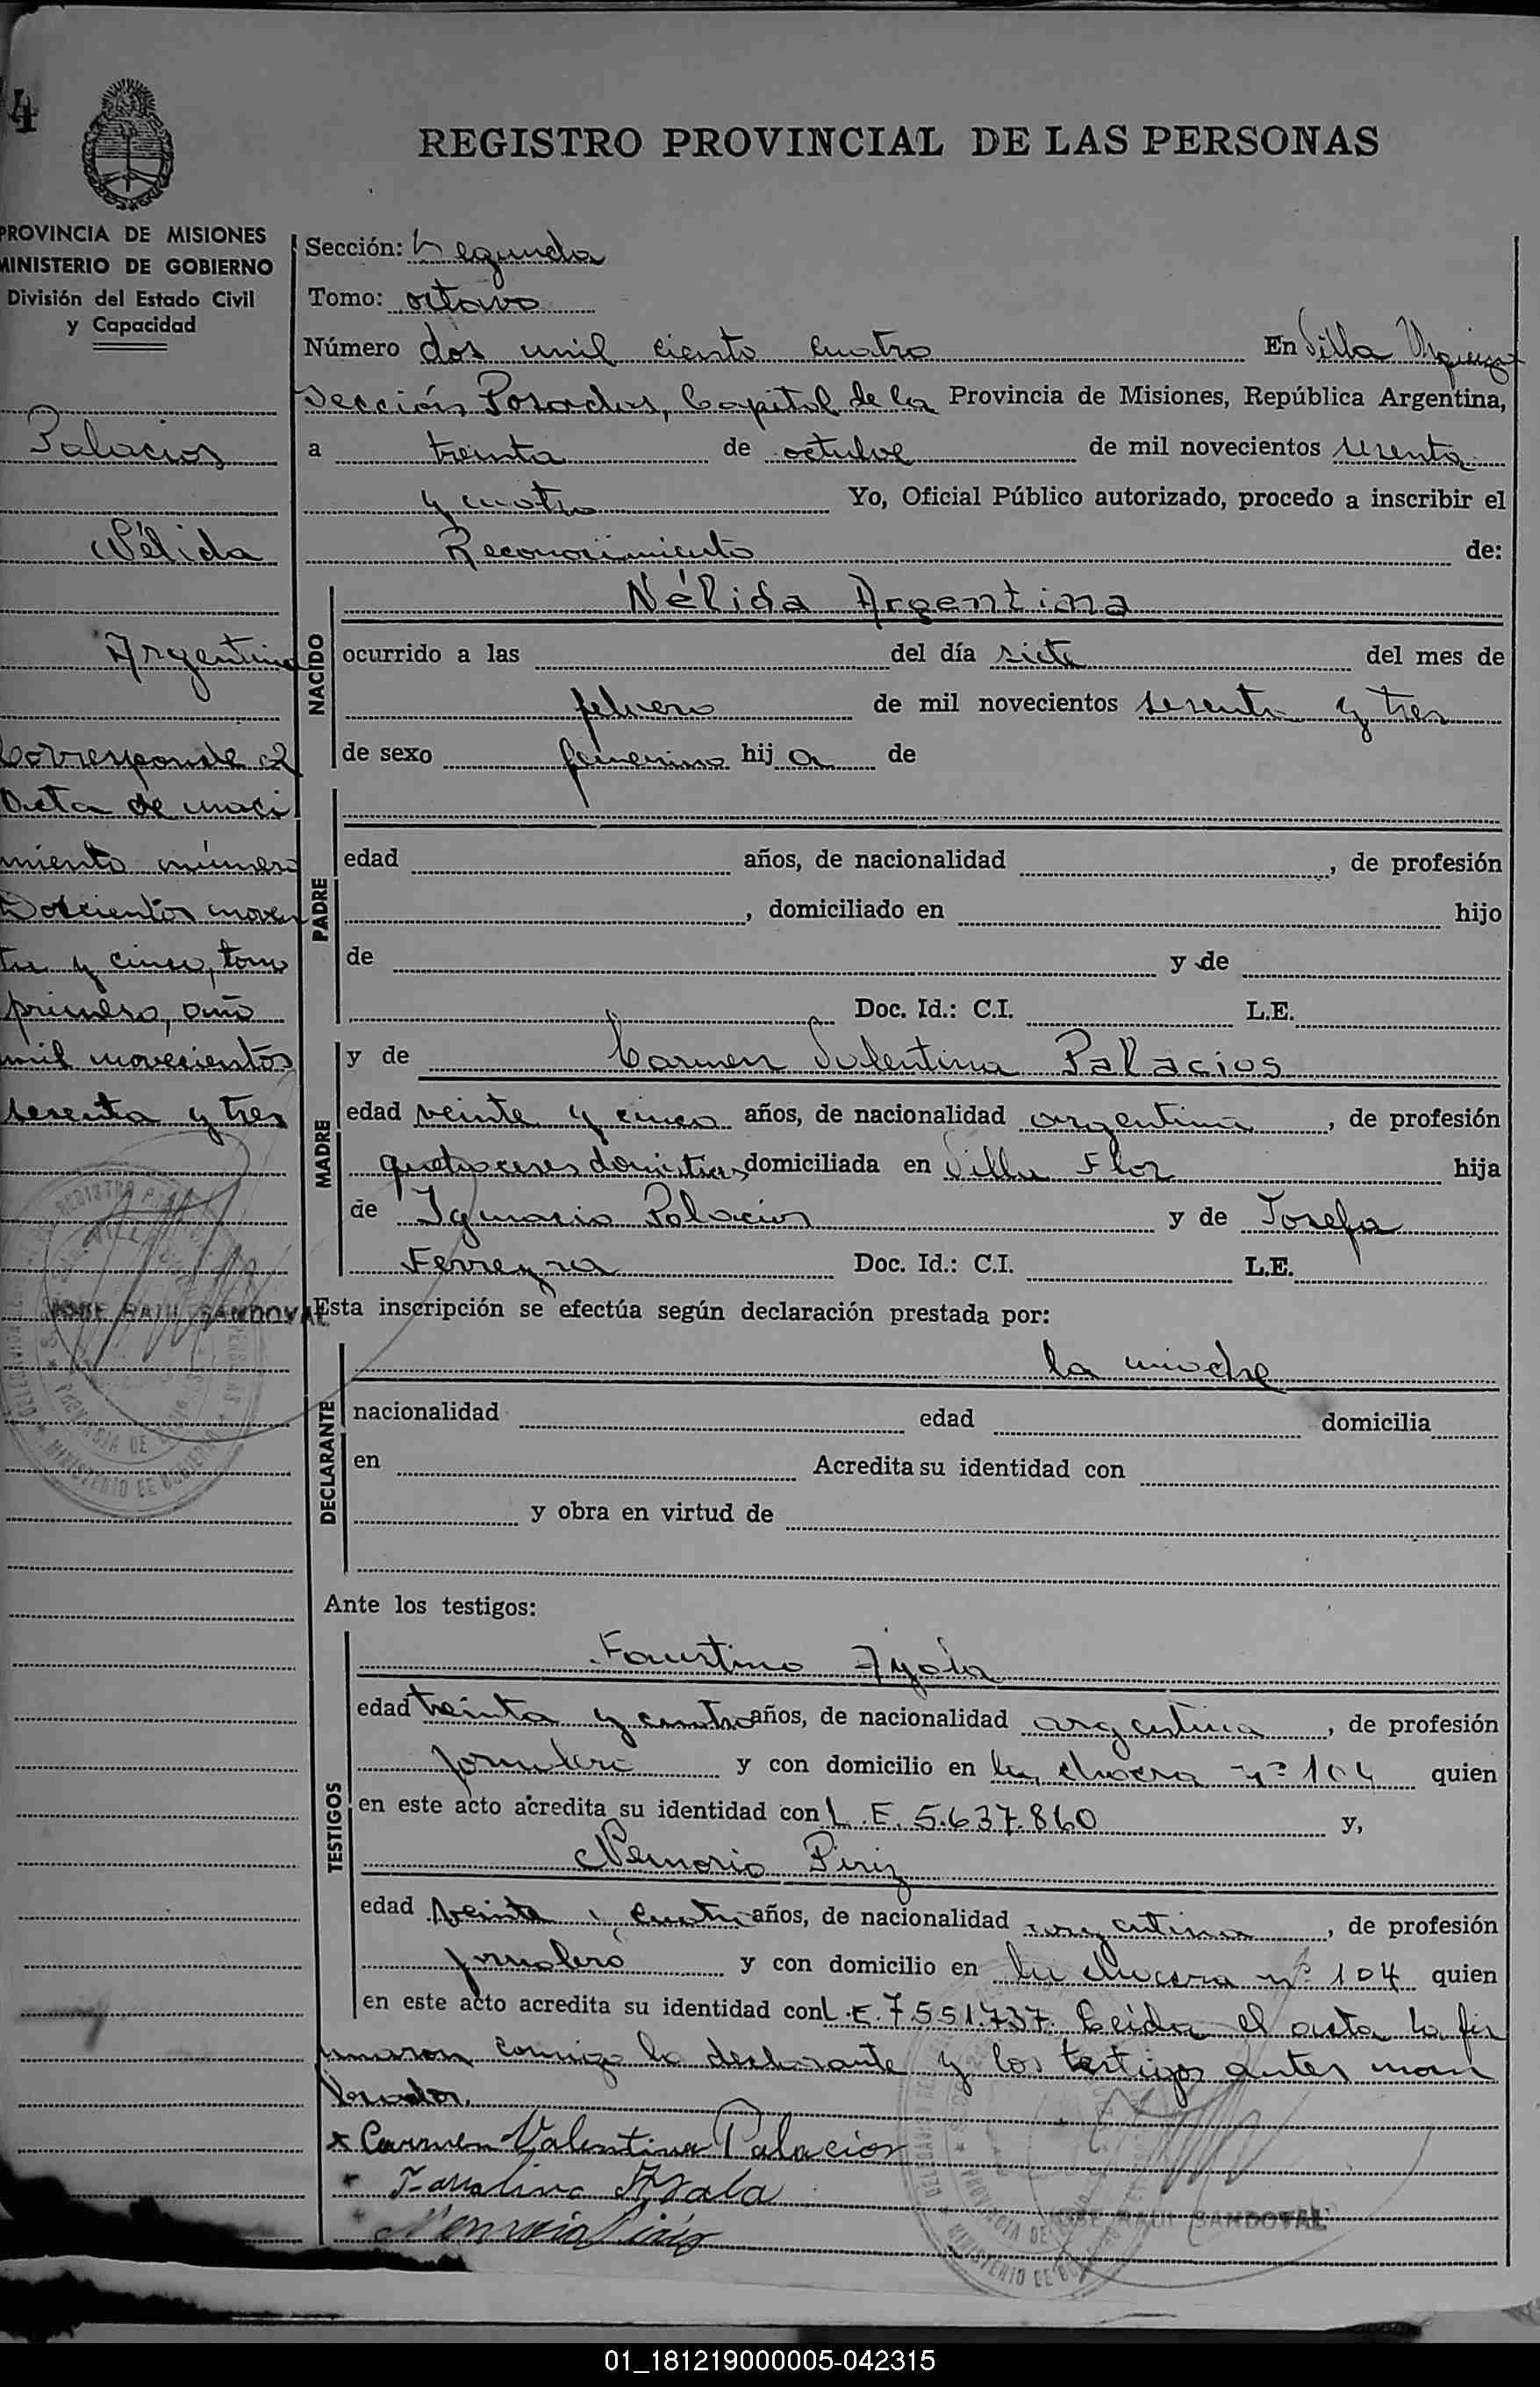 4
REGISTRO PROVINCIAL DE LAS PERSONAS
PROVINCIA DE MISIONES
MINISTERIO DE GOBIERNO
División del Estado Civil
y Capacidad
Palacios
Nélida
Argentina
Corresponde al
Acta de naci
miento número
Doscientos noven
ta y cinco, tomo
primero, año
mil novecientos
sesenta y tres
JOSE RAUL SANDOVAL
Sección: Segunda
Tomo: octavo
Número dos mil ciento cuatro En Villa Urquiza
Sección Posadas, Capital de la Provincia de Misiones, República Argentina,
a treinta de octubre de mil novecientos sesenta
y cuatro Yo, Oficial Público autorizado, procedo a inscribir el
Reconocimiento de:
NACIDO
Nélida Argentina
ocurrido a las del día siete del mes de
febrero de mil novecientos sesenta y tres
de sexo femenino hij a de
PADRE
edad años, de nacionalidad , de profesión
, domiciliado en hijo
de y de
Doc. Id.: C.I. L.E.
MADRE
y de Carmen Valentina Palacios
edad veinte y cinco años, de nacionalidad argentina, de profesión
quehaceres domésticos, domiciliada en Villa Flor hija
de Ignacio Palacios y de Josefa
Ferreyra Doc. Id.: C.I. L.E.
Esta inscripción se efectúa según declaración prestada por:
DECLARANTE
la madre
nacionalidad edad domicilia
en Acredita su identidad con
y obra en virtud de
Ante los testigos:
TESTIGOS
Faustino Ayala
edad treinta y cuatro años, de nacionalidad argentina, de profesión
jornalero y con domicilio en la chacra nº 104 quien
en este acto acredita su identidad con L.E. 5.637.860 y,
Nemorio Piriz
edad veinte y cuatro años, de nacionalidad argentina, de profesión
jornalero y con domicilio en la chacra nº 104 quien
en este acto acredita su identidad con L.E. 7.551.737. Leída el acta la fir
maron conmigo la declarante y los testigos antes men
x Carmen Valentina Palacios
Faustino Ayala
JOSE RAUL SANDOVAL
01_181219000005-042315